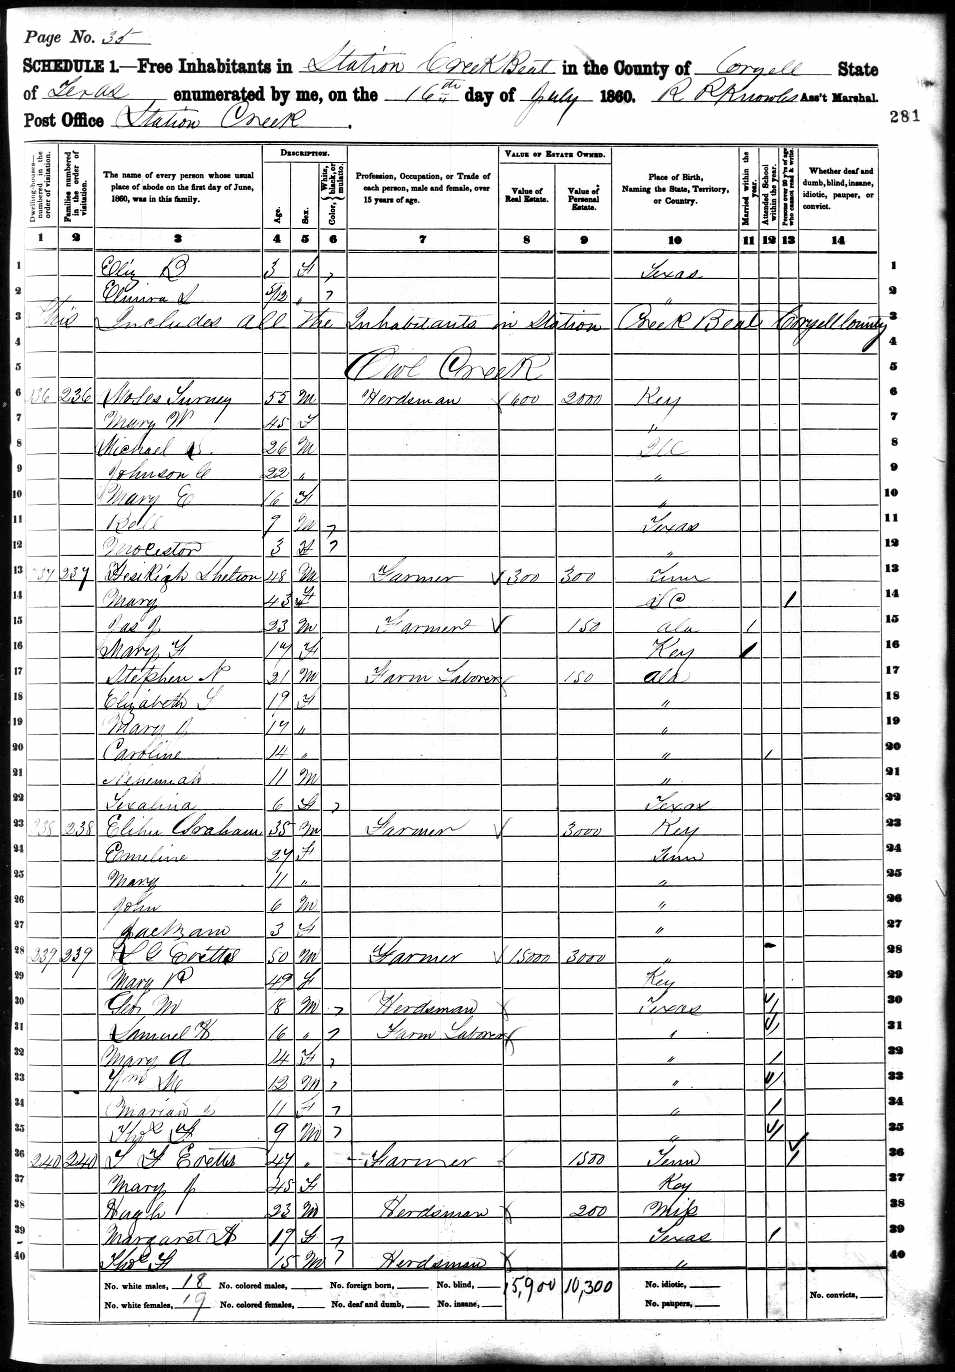 Page No. 35
SCHEDULE 1.—Free Inhabitants in Station Creek Beat in the County of Coryell State
of Texas enumerated by me, on the 16th day of July 1860. R R Knowles Ass't Marshal.
281
Post Office Station Creek.
Dwelling-houses—numbered in the order of visitation.
Families numbered in the order of visitation.
The name of every person whose usual place of abode on the first day of June, 1860, was in this family.
DESCRIPTION.
Age.
Sex.
Color, White, black, or mulatto.
Profession, Occupation, or Trade of each person, male and female, over 15 years of age.
VALUE OF ESTATE OWNED.
Value of Real Estate.
Value of Personal Estate.
Place of Birth, Naming the State, Territory, or Country.
Married within the year.
Attended School within the year.
Persons over 20 y'rs of age who cannot read & write.
Whether deaf and dumb, blind, insane, idiotic, pauper, or convict.
1 2 3 4 5 6 7 8 9 10 11 12 13 14
1 Eliz B 3 F Texas 1
2 Elmira S 5/12 " " 2
3 This Includes all the Inhabitants in Station Creek Beat Coryell County 3
4 4
5 Owl Creek 5
6 236 236 55 M Herdsman 600 2000 Key 6
7 Mary W 45 F " 7
8 Michael 26 M Ill 8
9 Johnson C 22 " " 9
10 Mary E 16 F " 10
11 Bell 9 M Texas 11
12 3 F " 12
13 237 237 48 M Farmer 300 300 Tenn 13
14 Mary 43 F S C 14
15 Jas J 23 M Farmer 150 Ala 1 15
16 Mary F 17 F Key 1 16
17 Stephen N 21 M Farm Laborer 150 Ala 17
18 Elizabeth S 19 F " 18
19 Mary J 17 " " 19
20 Caroline 14 " " 1 20
21 Nehemiah 11 M " 21
22 Texalina 6 F Texas 22
23 238 238 Elihu Graham 35 M Farmer 3000 Key 23
24 Emeline 27 F Tenn 24
25 Mary 11 " " 25
26 John 6 M " 26
27 3 F " 27
28 239 239 50 M Farmer 15000 3000 " 28
29 Mary R 49 F Key 29
30 Geo M 18 M Herdsman Texas 1 30
31 Samuel H 16 " Farm Laborer " 1 31
32 Mary A 14 F " 1 32
33 Wm M 12 M " 1 33
34 Marian 11 F " 1 34
35 Thos H 9 M " 1 35
36 240 240 47 " Farmer 1500 Tenn 1 36
37 Mary J 45 F Key 37
38 Hugh 23 M Herdsman 200 Miss 38
39 Margaret A 17 F Texas 1 39
40 Thos H 15 M Herdsman " 40
No. white males, 18 No. colored males, No. foreign born, No. blind, 15,900 10,300 No. idiotic,
No. white females, 19 No. colored females, No. deaf and dumb, No. insane, No. paupers, No. convicts,